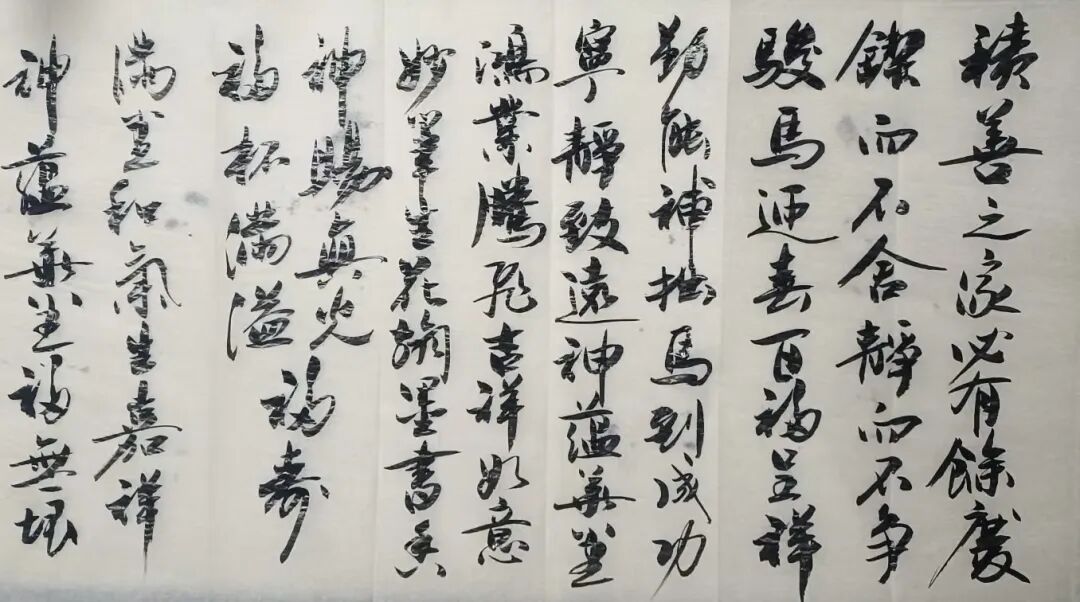 積善之家必有餘慶
鍥而不舍靜而不爭
駿馬迎春百福呈祥
勤能補拙馬到成功
寧靜致遠神蘊華堂
鴻業騰飛吉祥如意
妙筆生花翰墨書香
神賜真火福壽
福杯滿溢
滿堂和氣生嘉祥
神蘊華堂福無垠